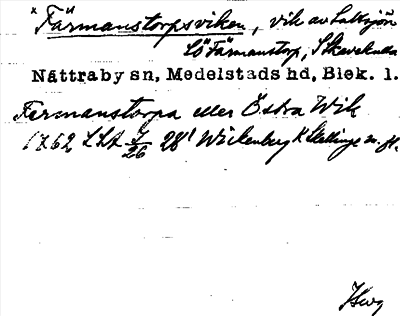 "Färmanstorpsviken, vik av Saltsjön
SÖ Färmanstorp, Skavkulla
Nättraby sn, Medelstads hd, Blek. l.
Fermanstorpa eller Östra Wik
1762 LSA J/26 28¹ Wickenberg K Skillinge m. fl.